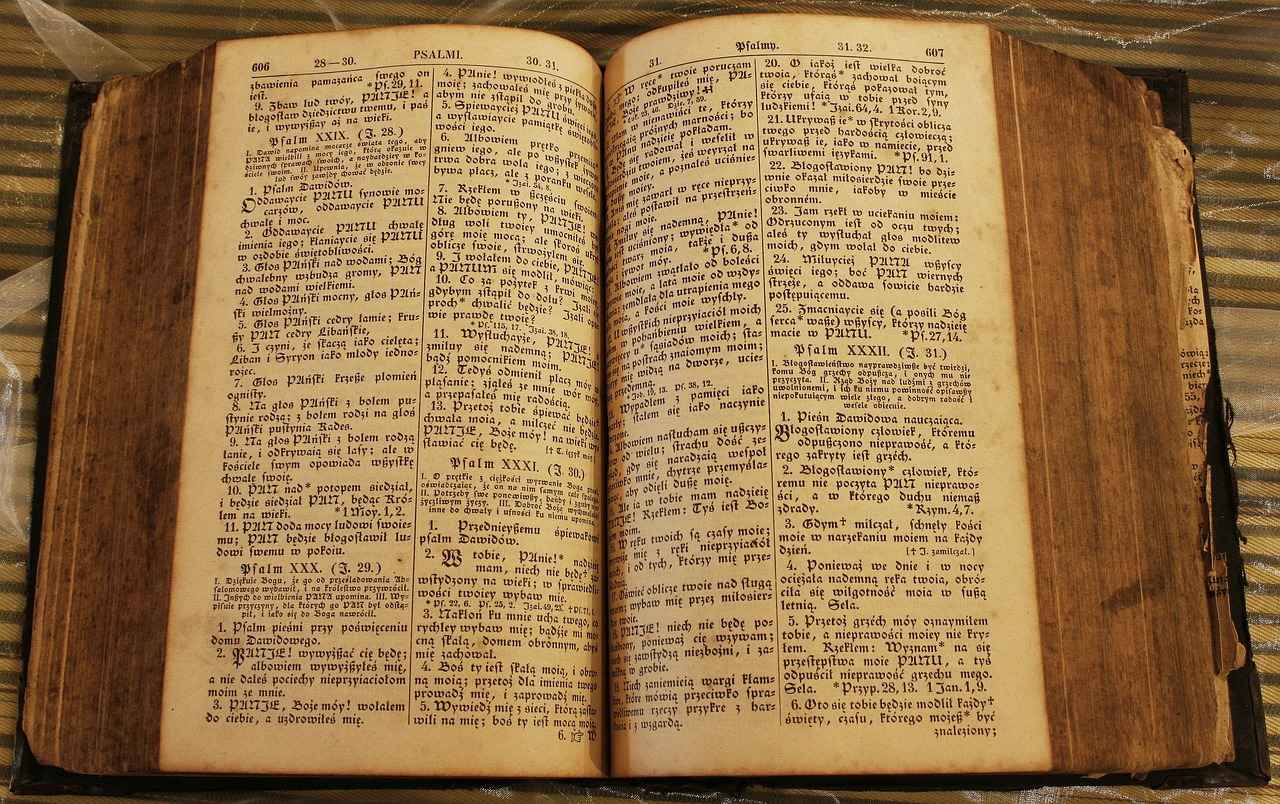 606 28—30. PSALMI. 30. 31.
zbawienia pamazańca swego on
jest. *Ps. 29, 11.
9. Zbaw lud twóy, PANIE! a
błogosław dziedzictwu twemu, i paś
ie, i wywyższay aż na wieki.
Psalm XXIX. (J. 28.)
1. Psalm Dawidów.
Oddawaycie PANU synowie mo-
carzów, oddawaycie PANU
chwałę i moc.
2. Oddawaycie PANU chwałę
imienia iego; kłaniaycie się PANU
w ozdobie świętobliwości.
3. Głos PAński nad wodami; Bóg
chwalebny wzbudza gromy, PAN
nad wodami wielkiemi.
4. Głos PAński mocny, głos PAń-
ski wielmożny.
5. Głos PAński cedry łamie; kru-
szy PAN cedry Libańskie,
6. I czyni, że skaczą iako cielęta;
Liban i Syryon iako młody iedno-
rożec.
7. Głos PAński krzesze płomień
ognisty.
8. Na głos PAński z bolem pu-
stynie rodzą; z bolem rodzi na głos
PAński pustynia Kades.
9. Na głos PAński z bolem rodzą
łanie, i odkrywaią się lasy; ale w
kościele swym opowiada wszystkę
chwałę swoię.
10. PAN nad* potopem siedział,
i będzie siedział PAN, będąc Kró-
lem na wieki. *1 Moy. 1, 2.
11. PAN doda mocy ludowi swoie-
mu; PAN będzie błogosławił lu-
dowi swemu w pokoiu.
Psalm XXX. (J. 29.)
I. Dziękuie Bogu, że go od prześladowania Ab-
salomowego wybawił, i na królestwo przywrócił.
II. Inszych do wielbienia PANA upomina. III. Wy-
pisuie przyczyny, dla których go PAN był odstą-
pił, i iako się do Boga nawrócił.
1. Psalm pieśni przy poświęceniu
domu Dawidowego.
2. PANIE! wywyższać cię będę;
albowiem wywyższyłeś mię,
a nie dałeś pociechy nieprzyiaciołom
moim ze mnie.
3. PANIE, Boże móy! wołałem
do ciebie, a uzdrowiłeś mię.
4. PAnie! wywiodłeś z piekła
moię; zachowałeś mię przy
abym nie zstąpił do grobu.
5. Śpiewaycież PANU święci iego,
a wysławiaycie pamiątkę
wości iego.
6. Albowiem prętko
gniew iego, ale po wszystek
trwa dobra wola iego; z wieczora
bywa płacz, ale z poranku
*Izai. 54, 8.
7. Rzekłem w szczęściu
Nie będę poruszony na wieki.
8. Albowiem ty, PANIE!
dług woli twoiey umocniłeś
górę moię mocą; ale skoroś
oblicze swoie, strwożyłem się.
9. I wołałem do ciebie, PANIE,
a PANUM się modlił, mówiąc:
10. Co za pożytek z krwi moiey,
gdybym zstąpił do dołu? Izali
proch* chwalić będzie? Izali
wie prawdę twoię?
*Ps. 115, 17. Izai. 38, 18.
11. Wysłuchayże, PANIE!
zmiłuy się nademną; PANIE!
bądź pomocnikiem moim.
12. Tedyś odmienił płacz móy w
pląsanie; zjąłeś ze mnie wór
a przepasałeś mię radością.
13. Przetoż tobie śpiewać będzie
chwała moia, a milczeć nie będzie.
PANIE, Boże móy! na wieki
sławiać cię będę.
Psalm XXXI. (J. 30.)
1. Przednieyszemu śpiewakowi
psalm Dawidów.
2. W tobie, PAnie!*
mam, niech nie będę†
wstydzony na wieki; w sprawiedli-
wości twoiey wybaw mię.
*Ps. 22, 6. Ps. 25, 2. Izai. 49, 23.
3. Nakłoń ku mnie ucha twego,
rychley wybaw mię; bądźże mi mo-
cną skałą, domem obronnym, abyś
mię zachował.
4. Boś ty iest skałą moią, i
ną moią; przetoż dla imienia twego
prowadź mię, i zaprowadź mię.
5. Wywiedź mię z sieci, którą zasta-
wili na mię; boś ty iest mocą moią.
6. ☞ W
31. Psalmy. 31. 32. 607
W ręce* twoie poruczam
odkupiłeś mię, PA-
Boże prawdziwy!
w nienawiści te, którzy
próżnych marności; bo
PAnu nadzieię pokładam.
się radował i weselił w
twoiem, żeś weyrzał na
moie, a poznałeś uciśnie-
moiey.
mię zawarł w ręce nieprzy-
aleś postawił na przestrzeń-
nogi moie.
się nademną, PAnie!
uciśniony; wywiędła* od
twarz moia, także i dusza
żywot móy. *Ps. 6, 8.
Albowiem zwątlało od boleści
moie, a lata moie od wzdy-
zemdlała dla utrapienia mego
moia, a kości moie wyschły.
wszystkich nieprzyiaciół moich
w pohańbieniu wielkiem, a
u* sąsiadów moich; sta-
na postrach znaiomym moim;
mię widzą na dworze, ucie-
przedemną.
*Job. 19, 13. Ps. 38, 12.
Wypadłem z pamięci iako
stałem się iako naczynie
Albowiem nasłucham się uszczy-
od wielu; strachu dość ze-
gdy się naradzaią wespół
mnie, chytrze przemyśla-
aby odięli duszę moię.
Ale ia w tobie mam nadzieię
PANIE! Rzekłem: Tyś iest Bo-
moim.
W ręku twoich są czasy moie;
mię z ręki nieprzyiaciół
i od tych, którzy mię prze-
Oświeć oblicze twoie nad sługą
wybaw mię przez miłosier-
twoie.
PANIE! niech nie będę po-
ponieważ cię wzywam;
zawstydzą niezbożni, i za-
w grobie.
Niech zaniemieią wargi kłam-
które mówią przeciwko spra-
rzeczy przykre z har-
i z wzgardą.
20. O iakoż iest wielka dobroć
twoia, którąś* zachował boiącym
się ciebie, którąś pokazował tym,
którzy ufaią w tobie przed syny
ludzkiemi! *Izai. 64, 4. 1 Kor. 2, 9.
21. Ukrywasz ie* w skrytości oblicza
twego przed hardością człowieczą;
ukrywasz ie, iako w namiecie, przed
swarliwemi ięzykami. *Ps. 91, 1.
22. Błogosławiony PAN! bo dzi-
wnie okazał miłosierdzie swoie prze-
ciwko mnie, iakoby w mieście
obronném.
23. Jam rzekł w uciekaniu moiem:
Odrzuconym iest od oczu twych;
aleś ty wysłuchał głos modlitew
moich, gdym wołał do ciebie.
24. Miłuycież PANA wszyscy
święci iego; boć PAN wiernych
strzeże, a oddawa sowicie hardzie
postępuiącemu.
25. Zmacniaycie się (a posili Bóg
serca* wasze) wszyscy, którzy nadzieię
macie w PANU. *Ps. 27, 14.
Psalm XXXII. (J. 31.)
I. Błogosławieństwo nayprawdziwsze być twierdzi,
komu Bóg grzechy odpuszcza, i onych mu nie
przyczyta. II. Rząd Boży nad ludźmi z grzechów
uwolnionemi, i ich ku niemu powinność opisawszy
niepokutuiącym wiele złego, a dobrym radość i
wesele obiecuie.
1. Pieśń Dawidowa nauczaiąca.
Błogosławiony człowiek, któremu
odpuszczono nieprawość, a któ-
rego zakryty iest grzéch.
2. Błogosławiony* człowiek, któ-
remu nie poczyta PAN nieprawo-
ści, a w którego duchu niemasz
zdrady. *Rzym. 4, 7.
3. Gdym† milczał, schnęły kości
moie w narzekaniu moiem na każdy
dzień. [† J. zamilczał.]
4. Ponieważ we dnie i w nocy
ociężała nademną ręka twoia, obró-
ciła się wilgotność moia w suszą
letnią. Sela.
5. Przetoż grzéch móy oznaymiłem
tobie, a nieprawości moiey nie kry-
łem. Rzekłem: Wyznam* na się
przestępstwa moie PANU, a tyś
odpuścił nieprawość grzechu mego.
Sela. *Przyp. 28, 13. 1 Jan. 1, 9.
6. Oto się tobie będzie modlił każdy†
święty, czasu, którego możesz* być
znaleziony;